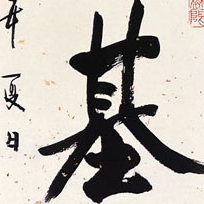 基
年夏日